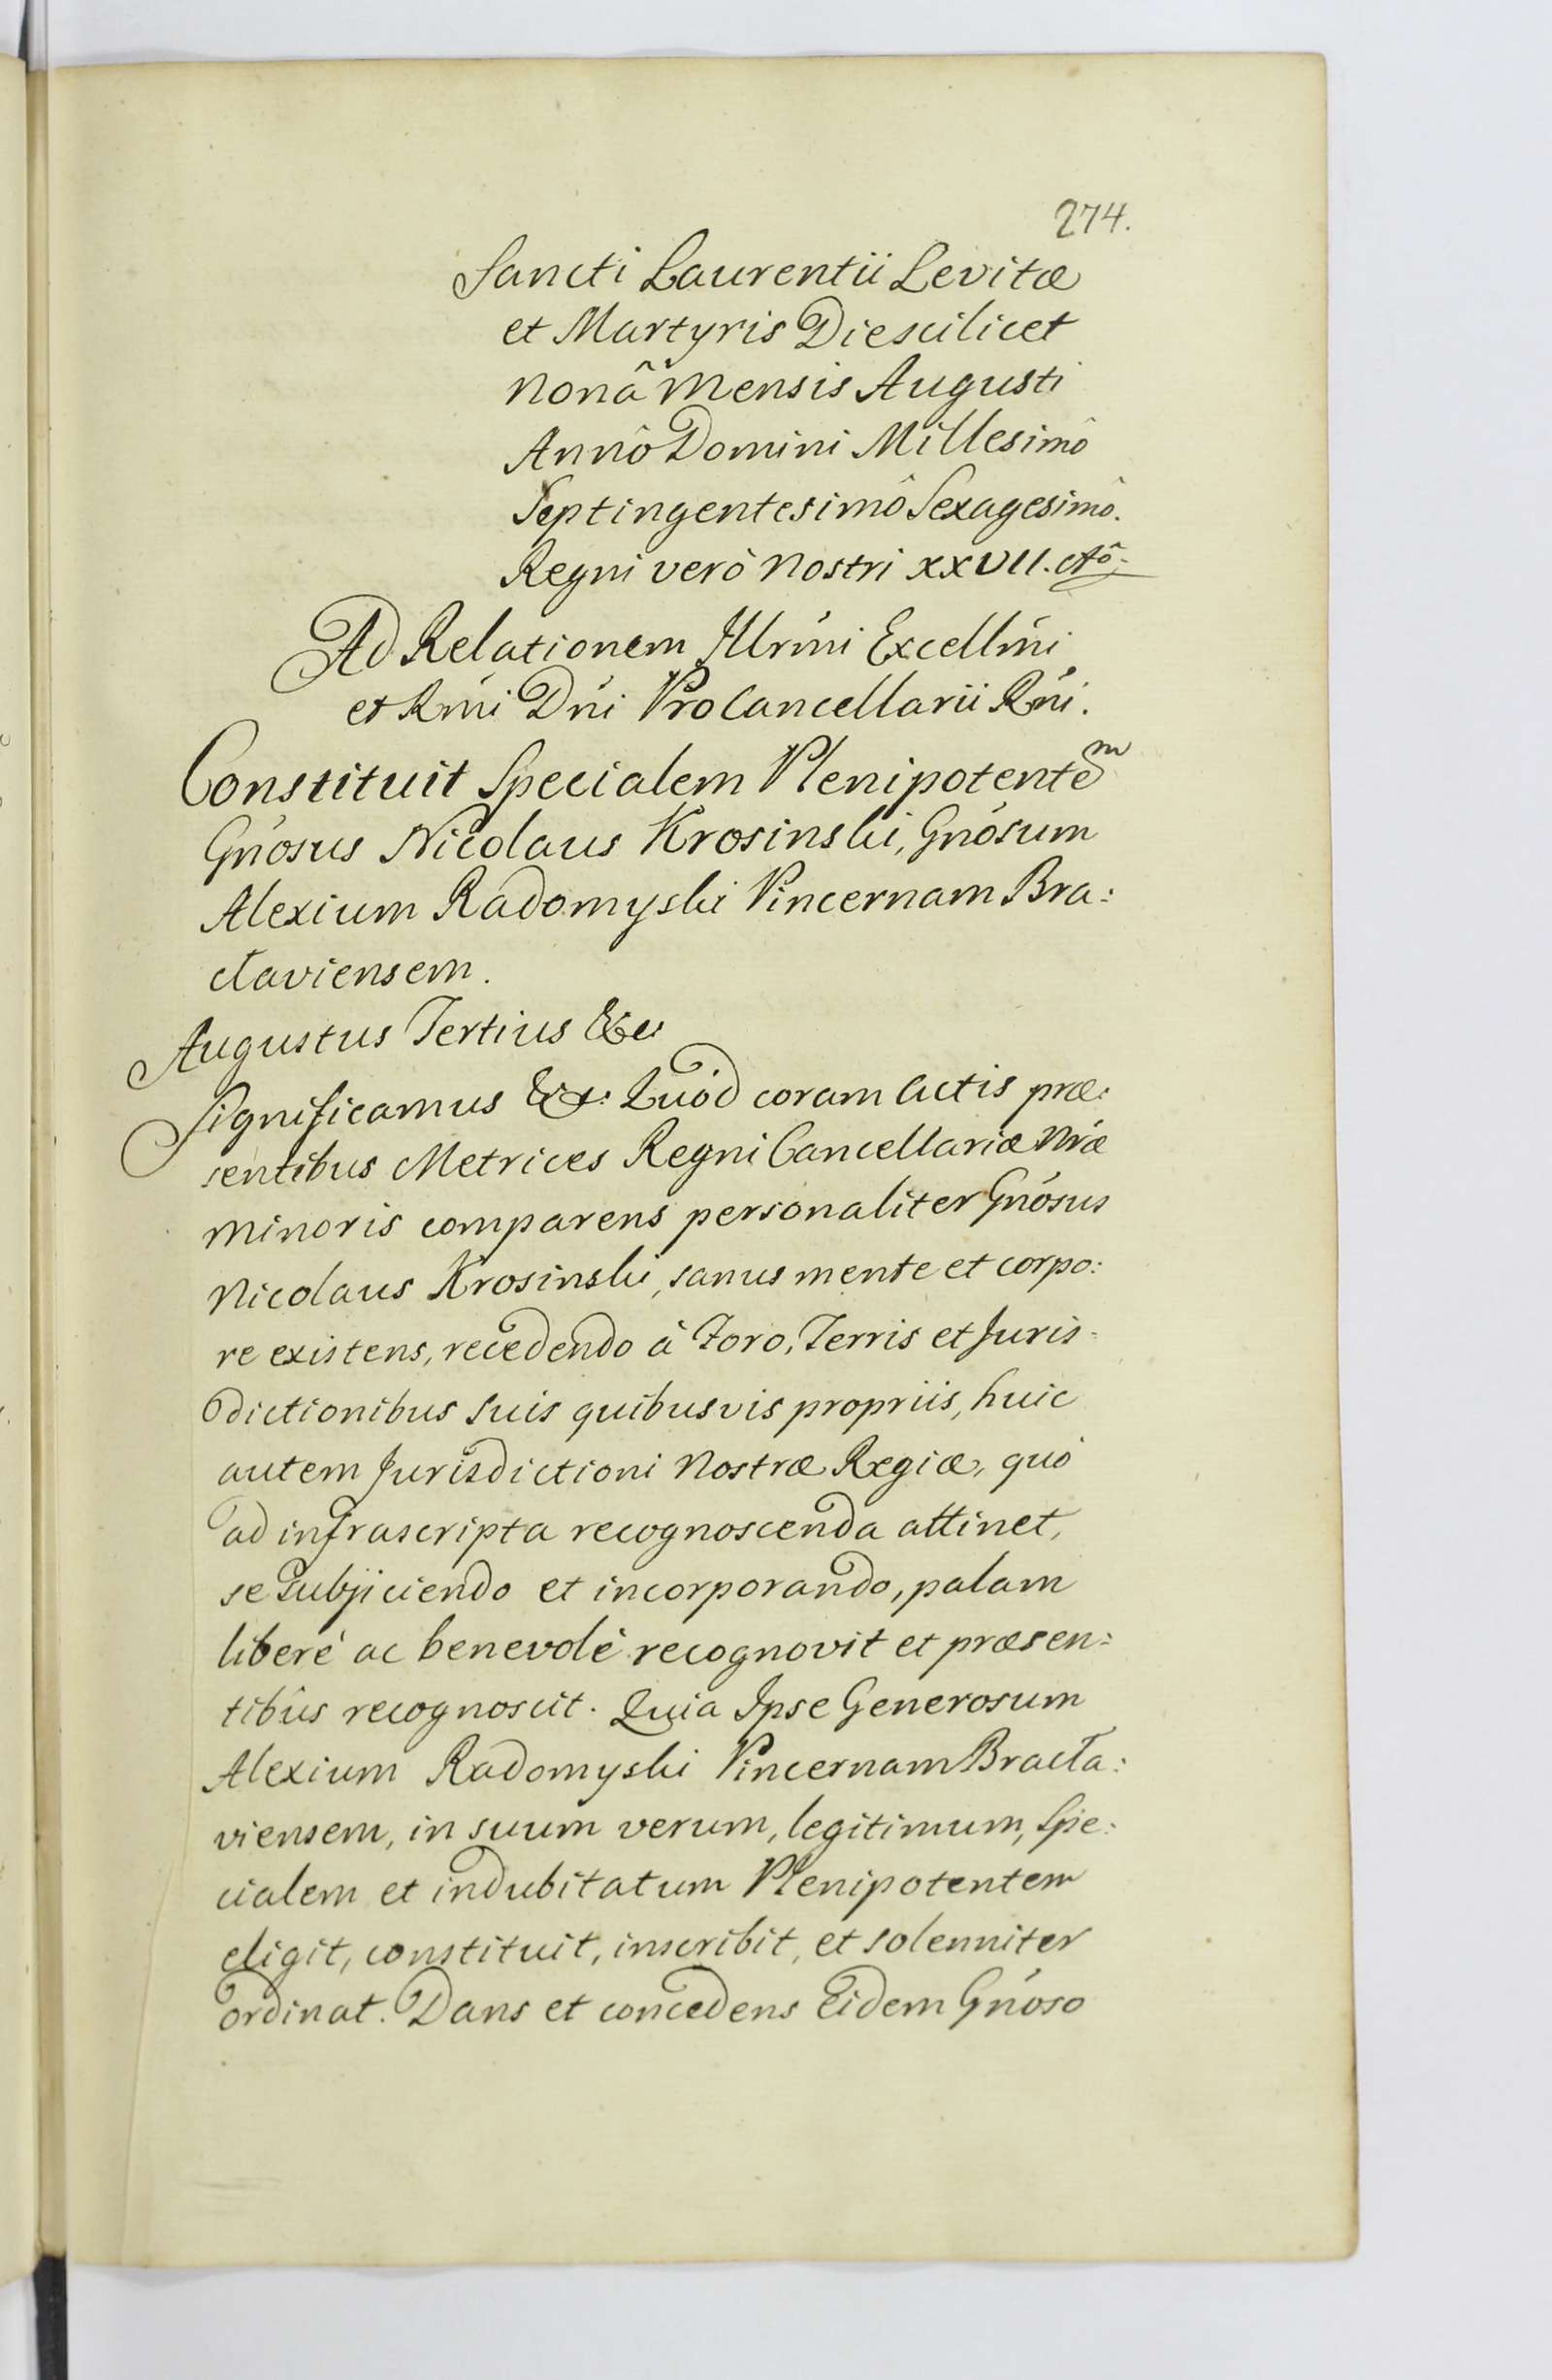 274.
Sancti Laurentii Levitæ
et Martyris Die scilicet
Nonâ Mensis Augusti
Annô Domini Millesimô
Septingentesimô Sexagesimô.
Regni verò Nostri XXVII. Aô.
Ad Relationem Illrmi Excellmi
et Rmi Dni ProCancellarii Rni.
Constituit Specialem Plenipotentem
Gnosus Nicolaus Krosinski, Gnosum
Alexium Radomyski Pincernam Bra:
claviensem.
Augustus Tertius &c:
Significamus &c: Quod coram Actis præ:
sentibus Metrices Regni Cancellariæ Nræ
Minoris comparens personaliter Gnosus
Nicolaus Krosinski, sanus mente et corpo:
re existens, recedendo à Foro, Terris et Juris=
dictionibus suis quibusvis propriis, huic
autem Jurisdictioni Nostræ Regiæ, quò
ad infrascripta recognoscenda attinet,
se subjiciendo et incorporando, palam
liberè ac benevolè recognovit et præsen=
tibûs recognoscit. Quia Ipse Generosum
Alexium Radomyski Pincernam Bracla:
viensem, in suum verum, legitimum, Spe:
cialem et indubitatum Plenipotentem
eligit, constituit, inscribit, et solenniter
ordinat. Dans et concedens Eidem Gnoso